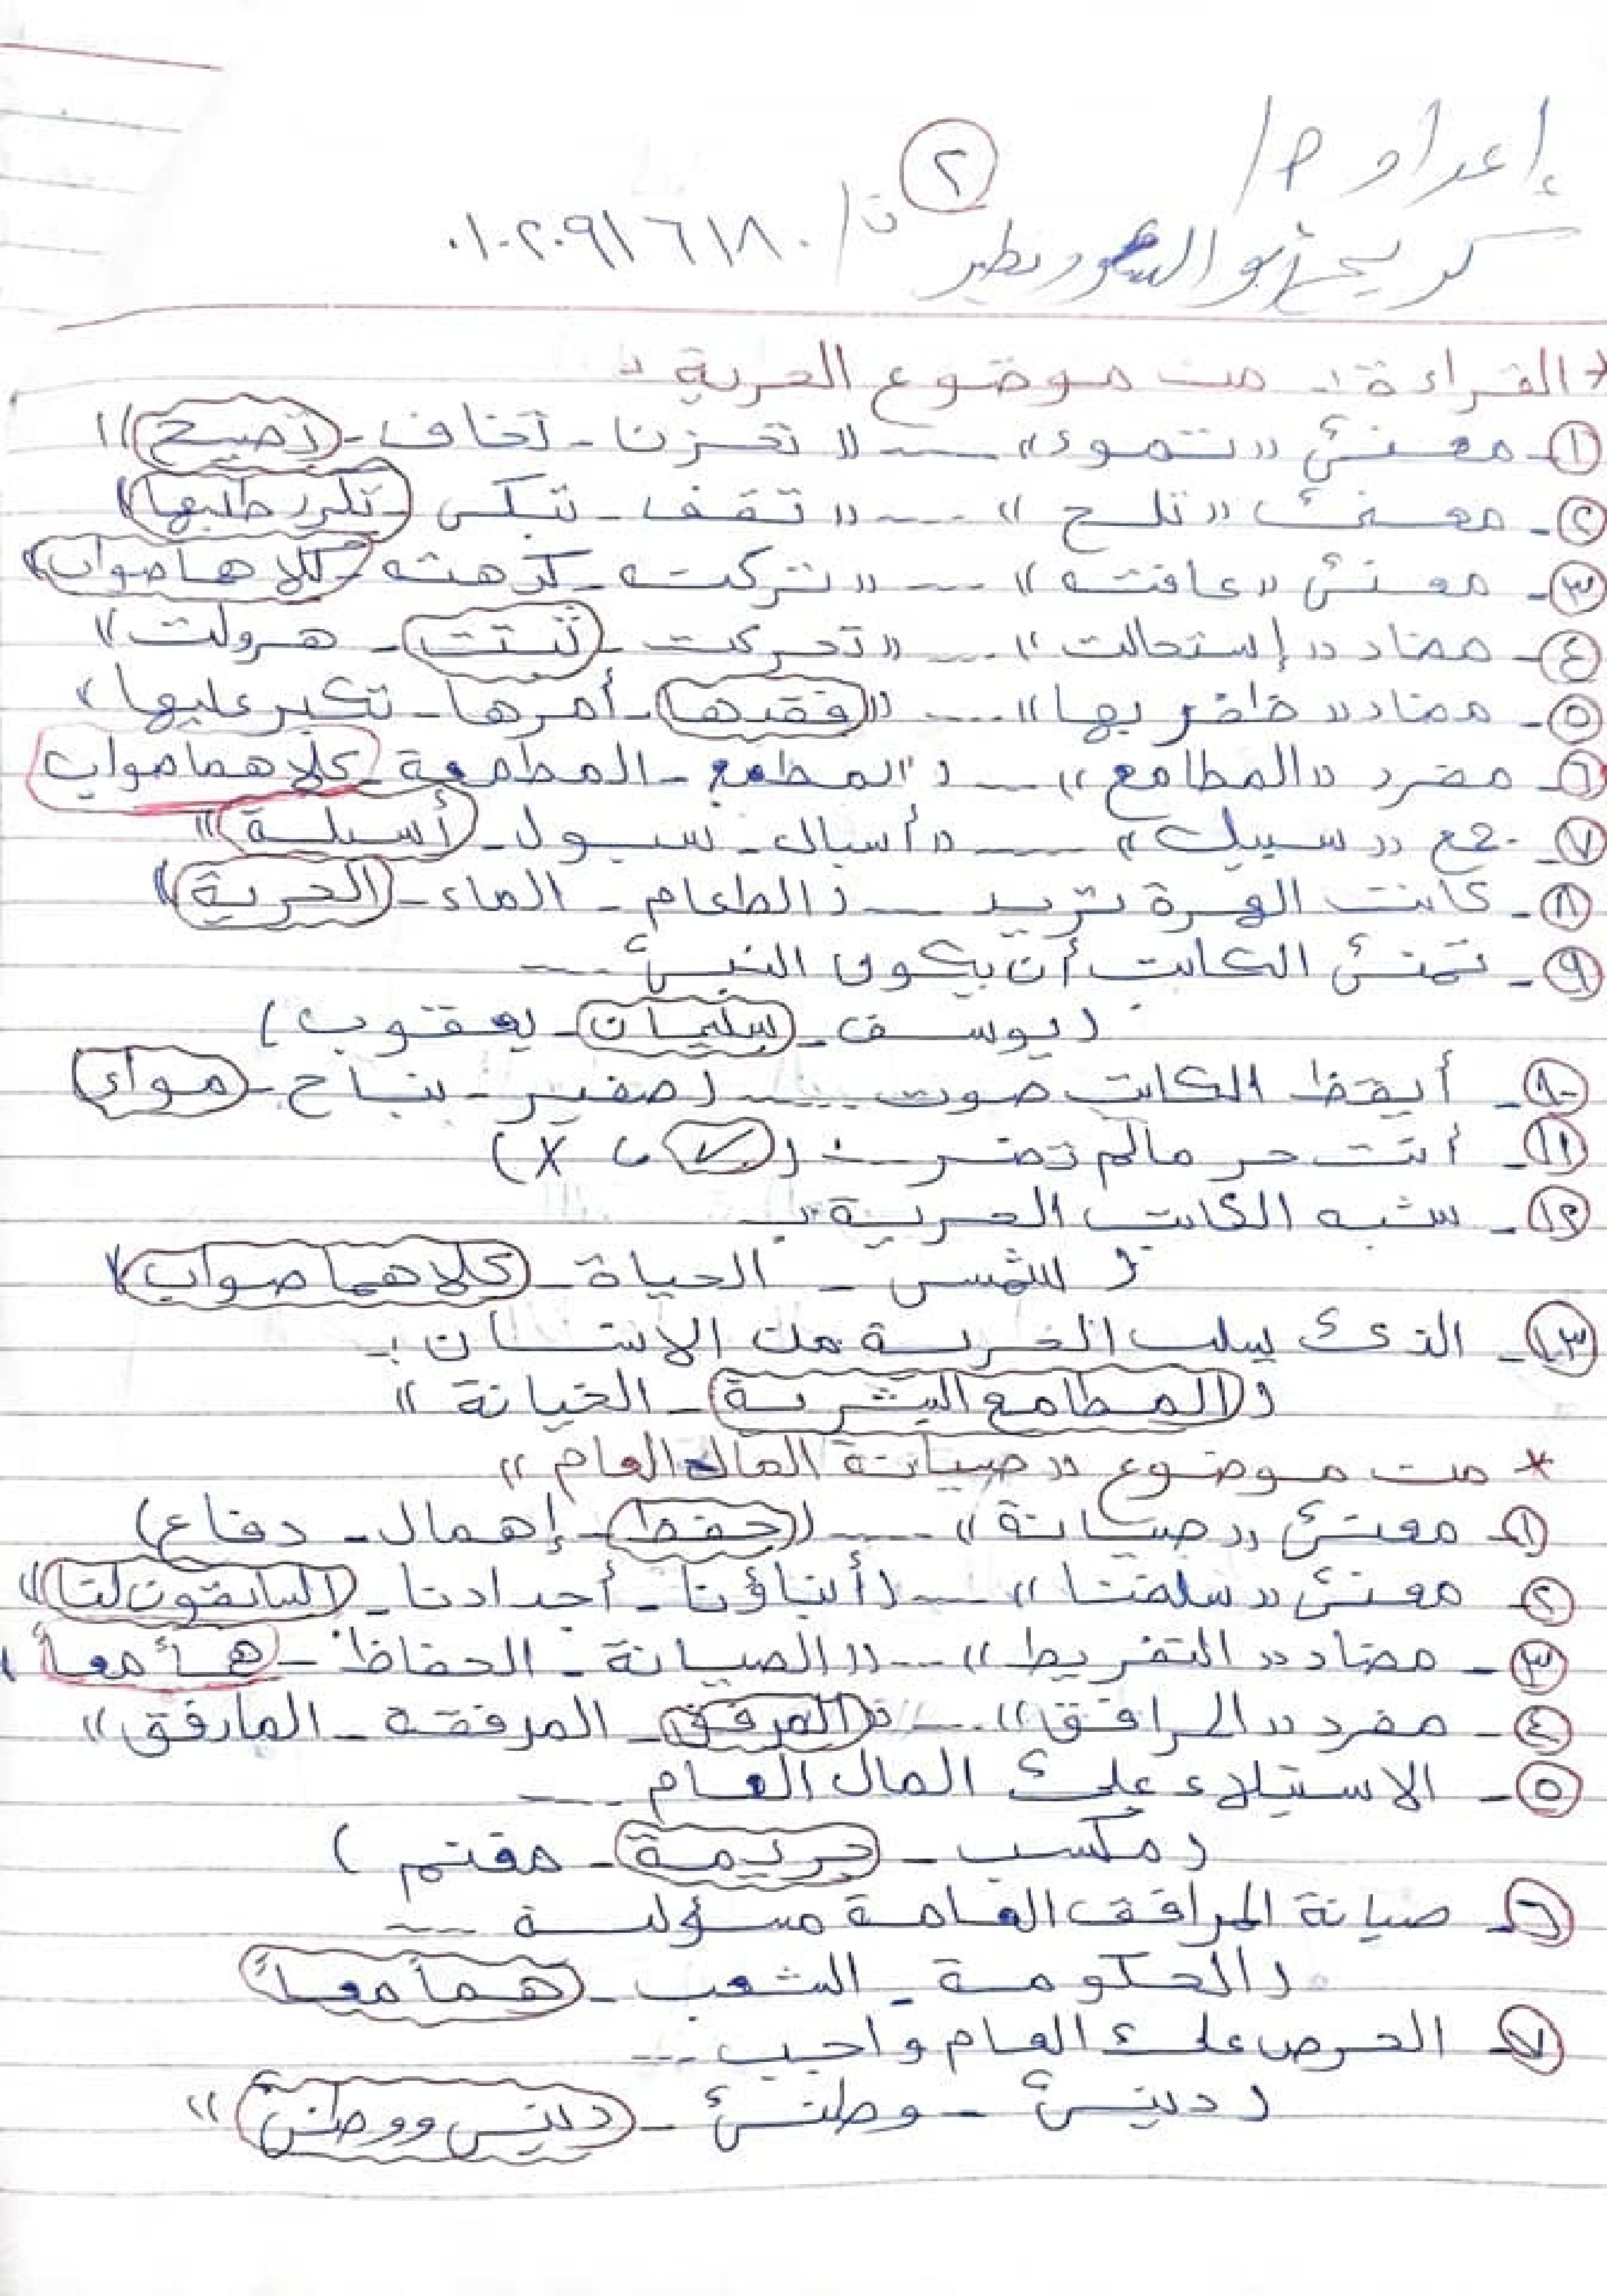 إعداد م/
٢
كريم أبو السعود نظير ت/ ٠١٠٢٠٩١٦١٨٠
* القراءة :- من موضوع الحرية :-
١- معنى «تموء» .... « تحزن - تخاف - تصيح »
٢- معنى «تلح» .... « تقف - تبكى - تكرر طلبها »
٣- معنى «عافته» .... « تركته - كرهته - كلاهما صواب »
٤- مضاد «إستحالت» .... « تحركت - ثبتت - هرولت »
٥- مضاد « ظفر بها » .... « فقدها - أمرها - تكبر عليها »
٦- مفرد «المطامع» .... « المطمع - المطمعة - كلاهما صواب
٧- جمع «سبيل» .... « أسبال - سبول - أسبلة »
٨- كانت الهرة تريد .... ( الطعام - الماء - الحرية )
٩- تمنى الكاتب أن يكون النبى ....
( يوسف - سليمان - يعقوب )
١٠- أيقظ الكاتب صوت .... ( صفير - نباح - مواء )
١١- أنت حر مالم تضر .... ( ✓ ، X )
١٢- شبه الكاتب الحرية بـ
( الشمس - الحياة - كلاهما صواب )
١٣- الذى يسلب الحرية من الانسان :-
( المطامع البشرية - الخيانة »
* من موضوع « صيانة المال العام »
١- معنى «صيانة» .... ( حفظ - إهمال - دفاع )
٢- معنى «سلفنا» .... ( أبناؤنا - أجدادنا - السابقون لنا »
٣- مضاد « التفريط » .... « الصيانة - الحفاظ - هما معاً )
٤- مفرد « المرافق » .... « المرفق - المرفقة - المارفق »
٥- الاستيلاء على المال العام ....
( مكسب - جريمة - مغنم )
٦- صيانة المرافق العامة مسؤلية ....
( الحكومة - الشعب - هما معاً )
٧- الحرص على العام واجب ....
( دينى - وطنى - دينى ووطنى »